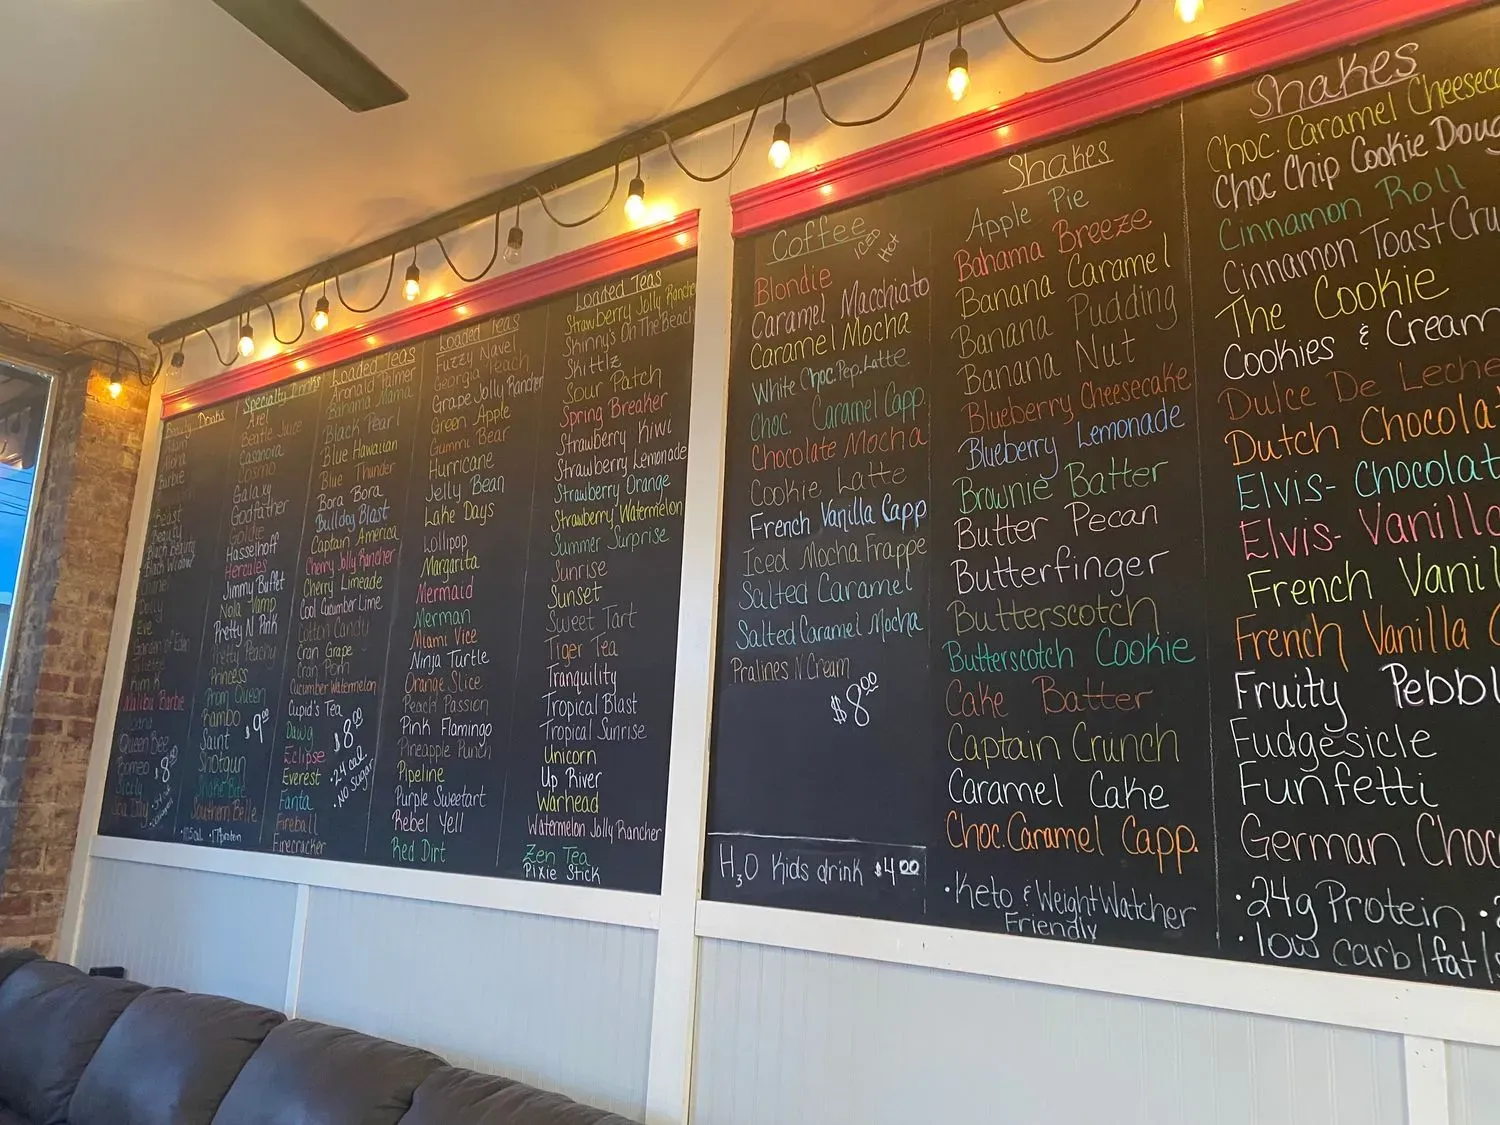 Beauty Drinks
Barbie
Beast
Beauty
Black Beauty
Black Widow
Eve
Garden of Eden
Malibu Barbie
Queen Bee
Romeo
$8.00
Specialty Drinks
Axel
Beatle Juice
Casanova
Cosmo
Galaxy
Godfather
Goldie
Hasselhoff
Hercules
Jimmy Buffet
Nola Vamp
Pretty N Pink
Pretty Peachy
Princess
Prom Queen
Rambo
Saint
$9.00
Shotgun
Snake Bite
Southern Belle
Loaded Teas
Aronald Palmer
Bahama Mama
Black Pearl
Blue Hawaiian
Blue Thunder
Bora Bora
Bulldog Blast
Captain America
Cherry Jolly Rancher
Cherry Limeade
Cool Cucumber Lime
Cotton Candy
Cran Grape
Cran Pom
Cucumber Watermelon
Cupid's Tea
Dawg
Eclipse
Everest
Fanta
Fireball
Firecracker
$8.00
• 24 cal
• No Sugar
Loaded Teas
Fuzzy Navel
Georgia Peach
Grape Jolly Rancher
Green Apple
Gummi Bear
Hurricane
Jelly Bean
Lake Days
Lollipop
Margarita
Mermaid
Merman
Miami Vice
Ninja Turtle
Orange Slice
Peach Passion
Pink Flamingo
Pineapple Punch
Pipeline
Purple Sweetart
Rebel Yell
Red Dirt
Loaded Teas
Strawberry Jolly Rancher
Skinny's On The Beach
Skittlz
Sour Patch
Spring Breaker
Strawberry Kiwi
Strawberry Lemonade
Strawberry Orange
Strawberry Watermelon
Summer Surprise
Sunrise
Sunset
Sweet Tart
Tiger Tea
Tranquility
Tropical Blast
Tropical Sunrise
Unicorn
Up River
Warhead
Watermelon Jolly Rancher
Zen Tea
Pixie Stick
Coffee
ICED
Hot
Blondie
Caramel Macchiato
Caramel Mocha
White Choc. Pep. Latte
Choc. Caramel Capp.
Chocolate Mocha
Cookie Latte
French Vanilla Capp
Iced Mocha Frappe
Salted Caramel
Salted Caramel Mocha
Pralines N Cream
$8.00
H3O Kids drink $4.00
Shakes
Apple Pie
Bahama Breeze
Banana Caramel
Banana Pudding
Banana Nut
Blueberry Cheesecake
Blueberry Lemonade
Brownie Batter
Butter Pecan
Butterfinger
Butterscotch
Butterscotch Cookie
Cake Batter
Captain Crunch
Caramel Cake
Choc. Caramel Capp.
• Keto & Weight Watcher
Friendly
Shakes
Choc. Caramel Cheeseca
Choc Chip Cookie Doug
Cinnamon Roll
Cinnamon Toast Cru
The Cookie
Cookies & Cream
Dulce De Leche
Dutch Chocola
Elvis- Chocolat
Elvis- Vanilla
French Vanil
French Vanilla C
Fruity Pebbl
Fudgesicle
Funfetti
German Choc
• 24g Protein •
• low carb/fat/s